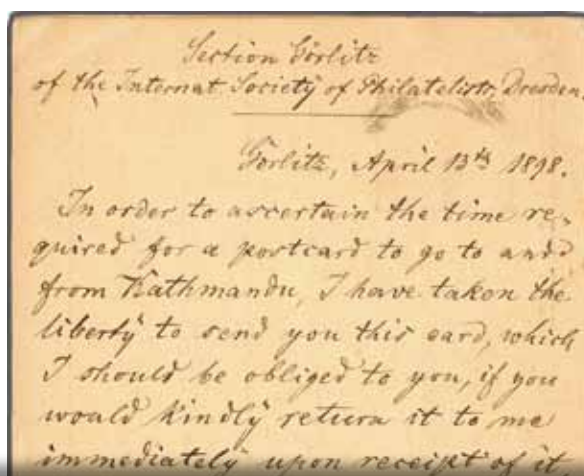 Section Görlitz
of the Internat Society of Philatelists, Dresden.
Görlitz, April 13th 1898.
In order to ascertain the time re-
quired for a postcard to go to and
from Kathmandu, I have taken the
liberty to send you this card, which
I should be obliged to you, if you
would kindly return it to me
immediately upon receipt of it